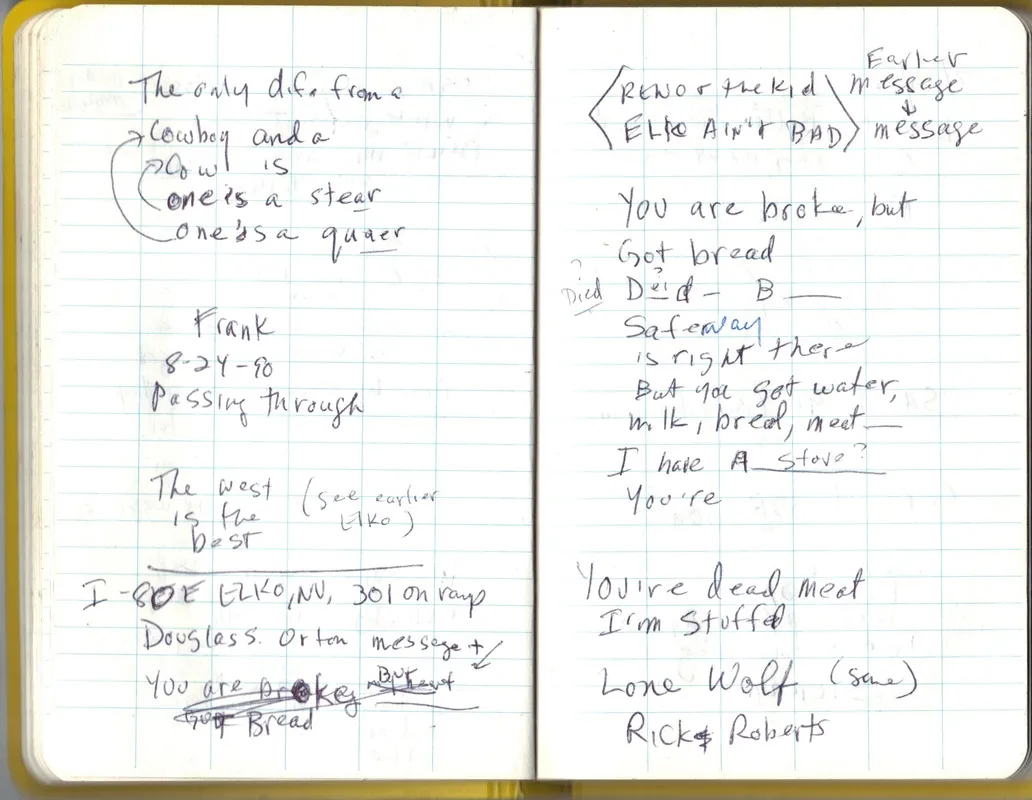 The only dif. from a
Cowboy and a
Cow is
one is a stear
one is a quaer
Frank
8-24-90
Passing through
The west (see earlier
is the Elko)
best
I-80E ELKO, NV, 301 on ramp
Douglas S. Orton message +
You are brokey But
Got Bread
RENO r the Kid
ELKO AIN'T BAD
Earlier
message
message
You are broke, but
Got bread
?
Died Deid - B
Safeway
is right there
But you got water,
milk, bread, meat
I have A stove?
You're
You're dead meat
I'm Stuffd
Lone Wolf (same)
Rick Roberts